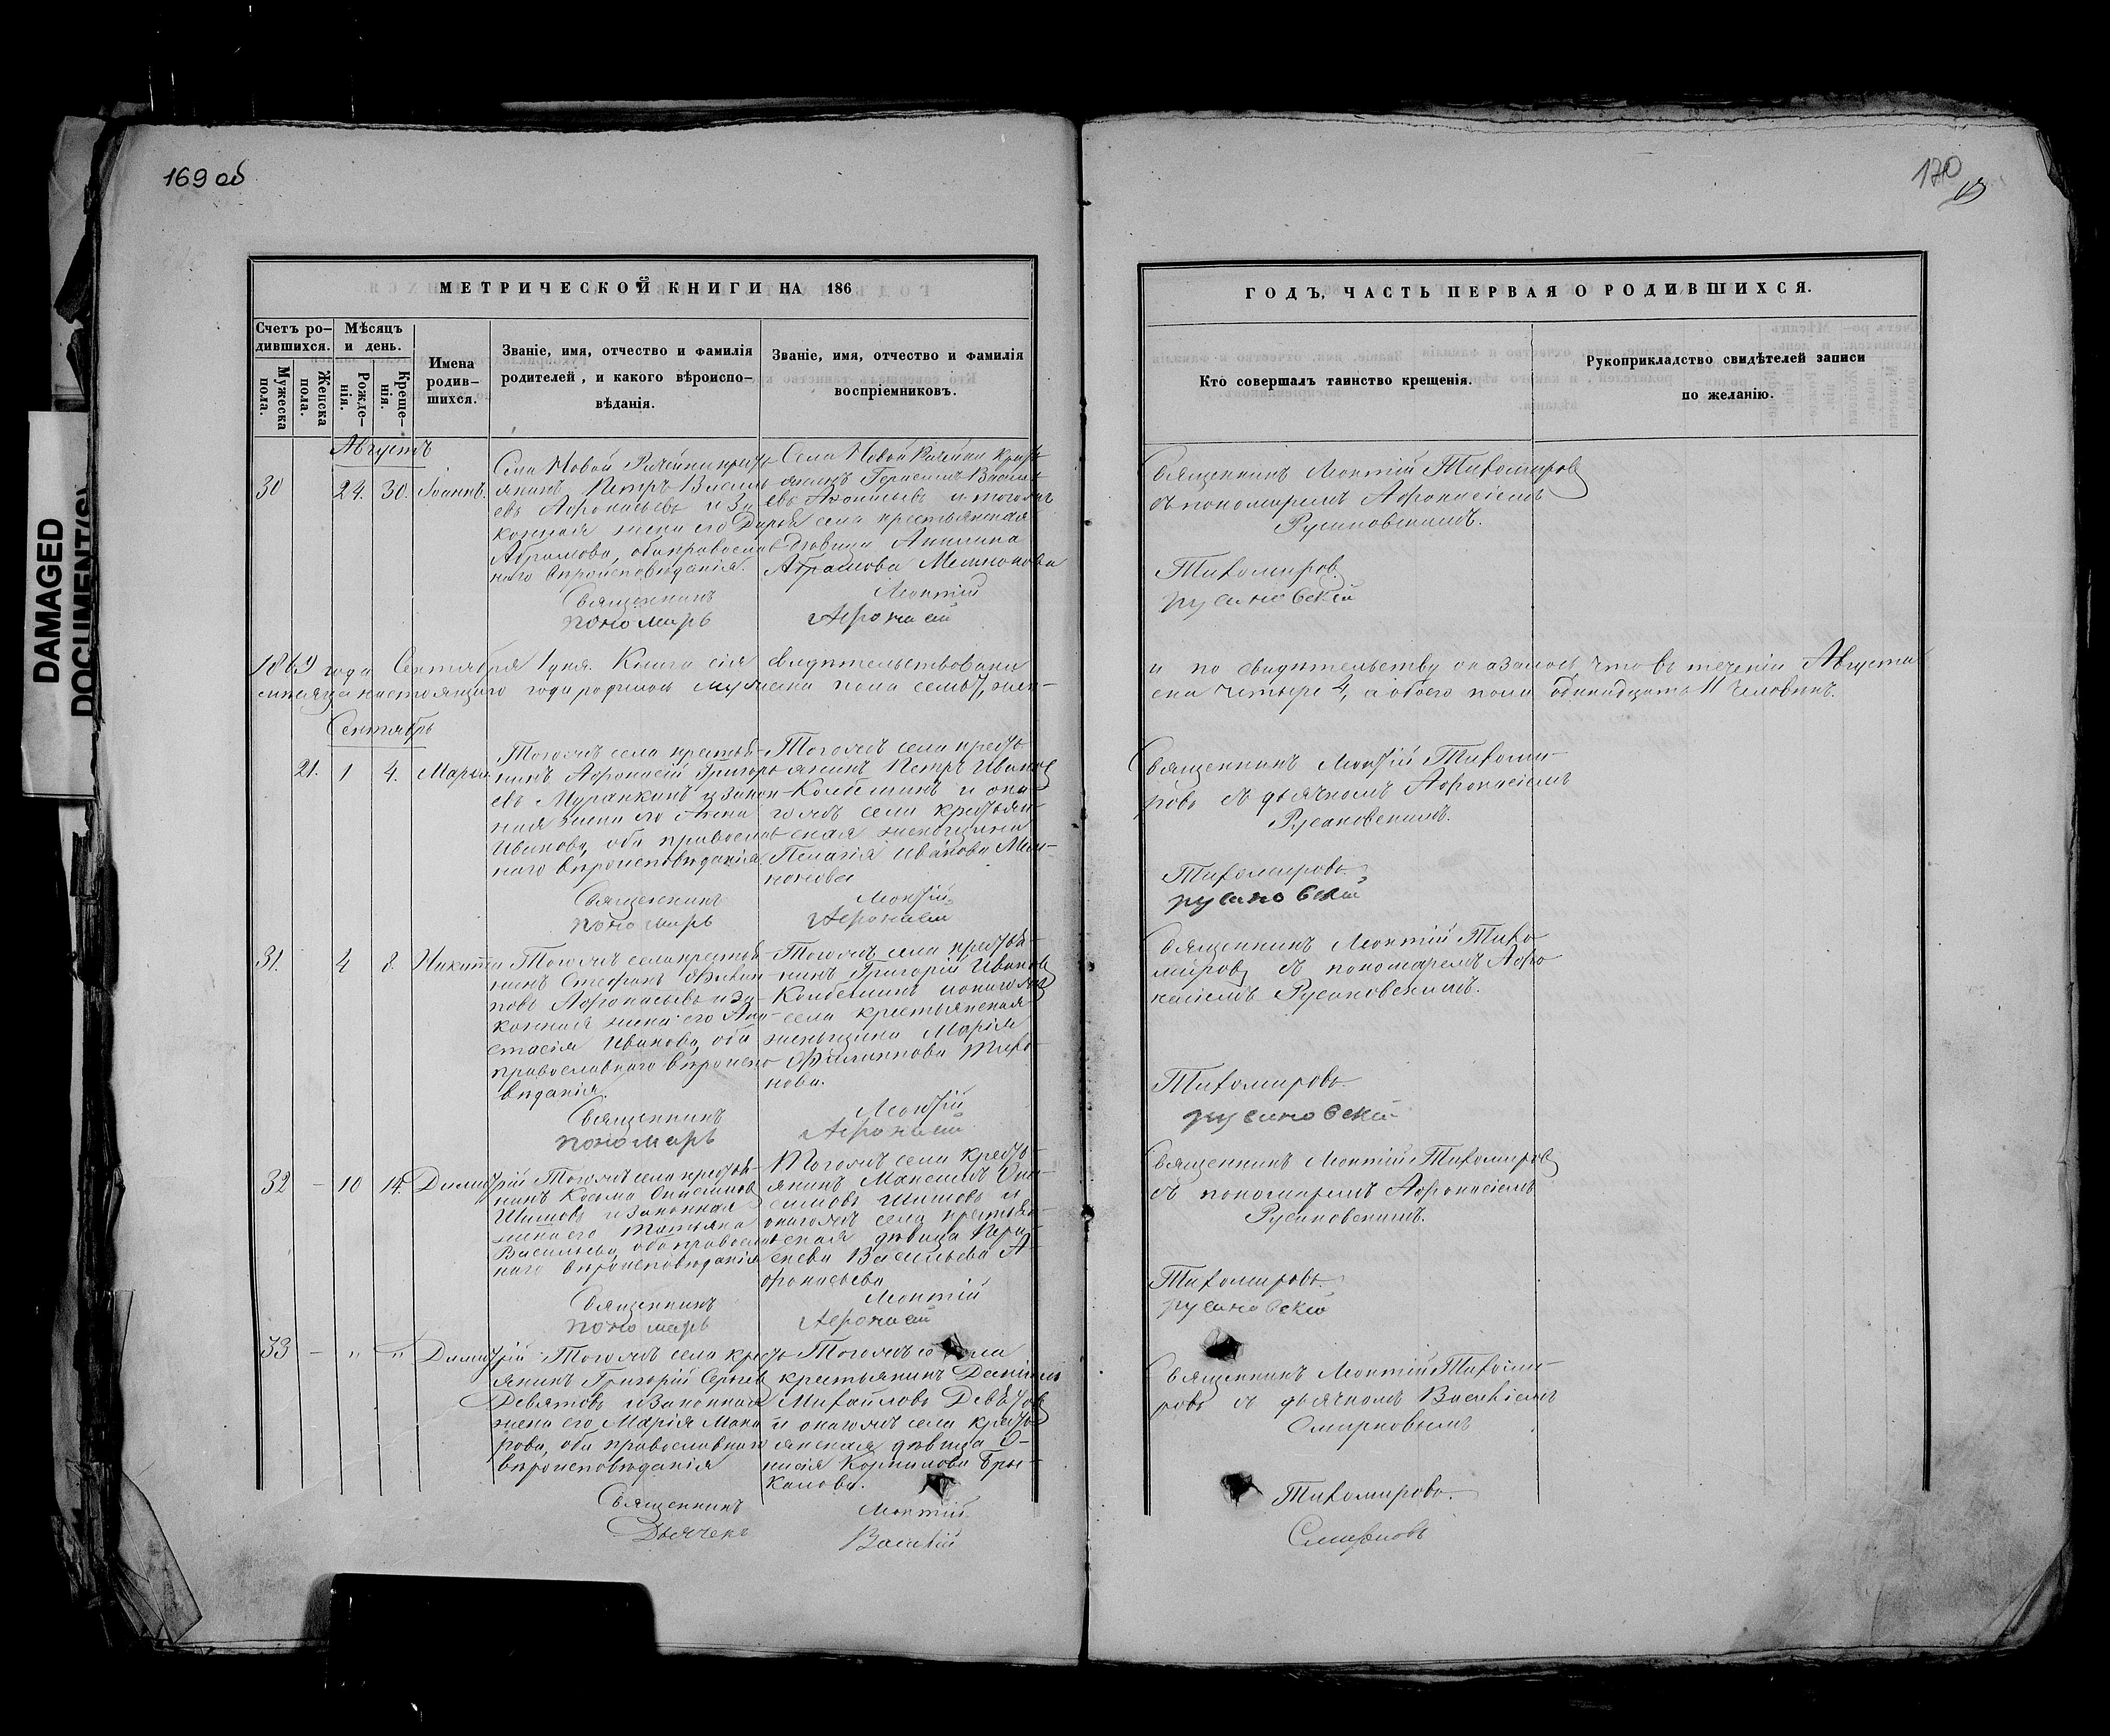 169 об
170
DAMAGED
DOCUMENT(S)
МЕТРИЧЕСКОЙ КНИГИ НА 186
ГОДЪ, ЧАСТЬ ПЕРВАЯ О РОДИВШИХСЯ.
Счетъ ро-
дившихся.
Мужеска
пола.
Женска
пола.
Мѣсяцъ
и день.
Рожде-
нія.
Креще-
нія.
Имена
родив-
шихся.
Званіе, имя, отчество и фамилія
родителей, и какого вѣроиспо-
вѣданія.
Званіе, имя, отчество и фамилія
воспріемниковъ.
Кто совершалъ таинство крещенія.
Рукоприкладство свидѣтелей записи
по желанію.
Августъ
30 24. 30. Іоаннъ.
Села Новой Рачейки кресть-
янинъ Петръ Василь
евъ Афонасьевъ и За
конная жена его Дарья
Абрамова, оба православ
наго вѣроисповѣданія.
Села Новой Рачейки кресть
янинъ Герасимъ Василь
евъ и тогожъ
села крестьянская
дѣвица Акилина
Абрамова
Священникъ Леонтій Тихомировъ
съ пономаремъ Афонасіемъ
Русановскимъ.
Священникъ Леонтій Тихомиров
пономарь Афонасій русановский
1869 года Сентября 1 дня. Книга сія свидѣтельствована и по свидѣтельству оказалось, что въ теченіи Августа
мѣсяца настоящаго года родилось мужеска пола семь 7, жен-ска четыре 4, а обоего пола одинадцать 11 человѣкъ.
Сентябрь
21. 1 4. Марья
Тогожъ села крестья-
нинъ Афонасій Григорь
евъ Муранкинъ и закон
ная жена его Анна
Иванова, оба православ
наго вѣроисповѣданія
Тогожъ села кресть
янинъ Петръ Ивановъ
и она
гожъ села крестьян
ская женщина
Пелагія Иванова
Священникъ Леонтій Тихоми-
ровъ съ дьячкомъ Афонасіемъ
Русановскимъ.
Священникъ Леонтій Тихомировъ
пономарь Афонасій русановский
31. 4 8. Никита
Тогожъ села крестья
нинъ Стефанъ Филип
повъ Афонасьевъ и За
конная жена его Ана
стасія Иванова, оба
православнаго вѣроиспо
вѣданія.
Тогожъ села крестья-
нинъ Григорій Ивановъ
и онагожъ
села крестьянская
женщина Марія
Филиппова Миро
нова.
Священникъ Леонтій Тихо
мировъ съ пономаремъ Афо
насіемъ Русановскимъ.
Священникъ Леонтій Тихомировъ
пономарь Афонасій русановский
32 – 10 14. Димитрій
Тогожъ села крестья-
нинъ Косма Онисимовъ
Шишовъ и законная
жена его Татьяна
Васильева, оба православ
наго вѣроисповѣданія
Тогожъ села кресть-
янинъ Максимъ Они-
симовъ Шишовъ и
онагожъ села крестьян
ская дѣвица Пара-
скева Васильева А-
фонасьева
Священникъ Леонтій Тихомировъ
съ пономаремъ Афонасіемъ
Русановскимъ.
Священникъ Леонтій Тихомировъ.
пономарь Афонасій русановский
33 – „ „ Димитрій
Тогожъ села кресть
янинъ Григорій Сергѣевъ
Девятовъ и Законная
жена его Марія Мака
рова, оба православнаго
вѣроисповѣданія
Тогожъ села
крестьянинъ Даніилъ
Михайловъ Девятовъ
и онагожъ села кресть
янская дѣвица
Корнилова Бры-
калова.
Священникъ Леонтій Тихоми-
ровъ съ дьячкомъ Василіемъ
Смирновымъ
Священникъ Леонтій Тихомировъ.
Дьячекъ Василій Смирновъ